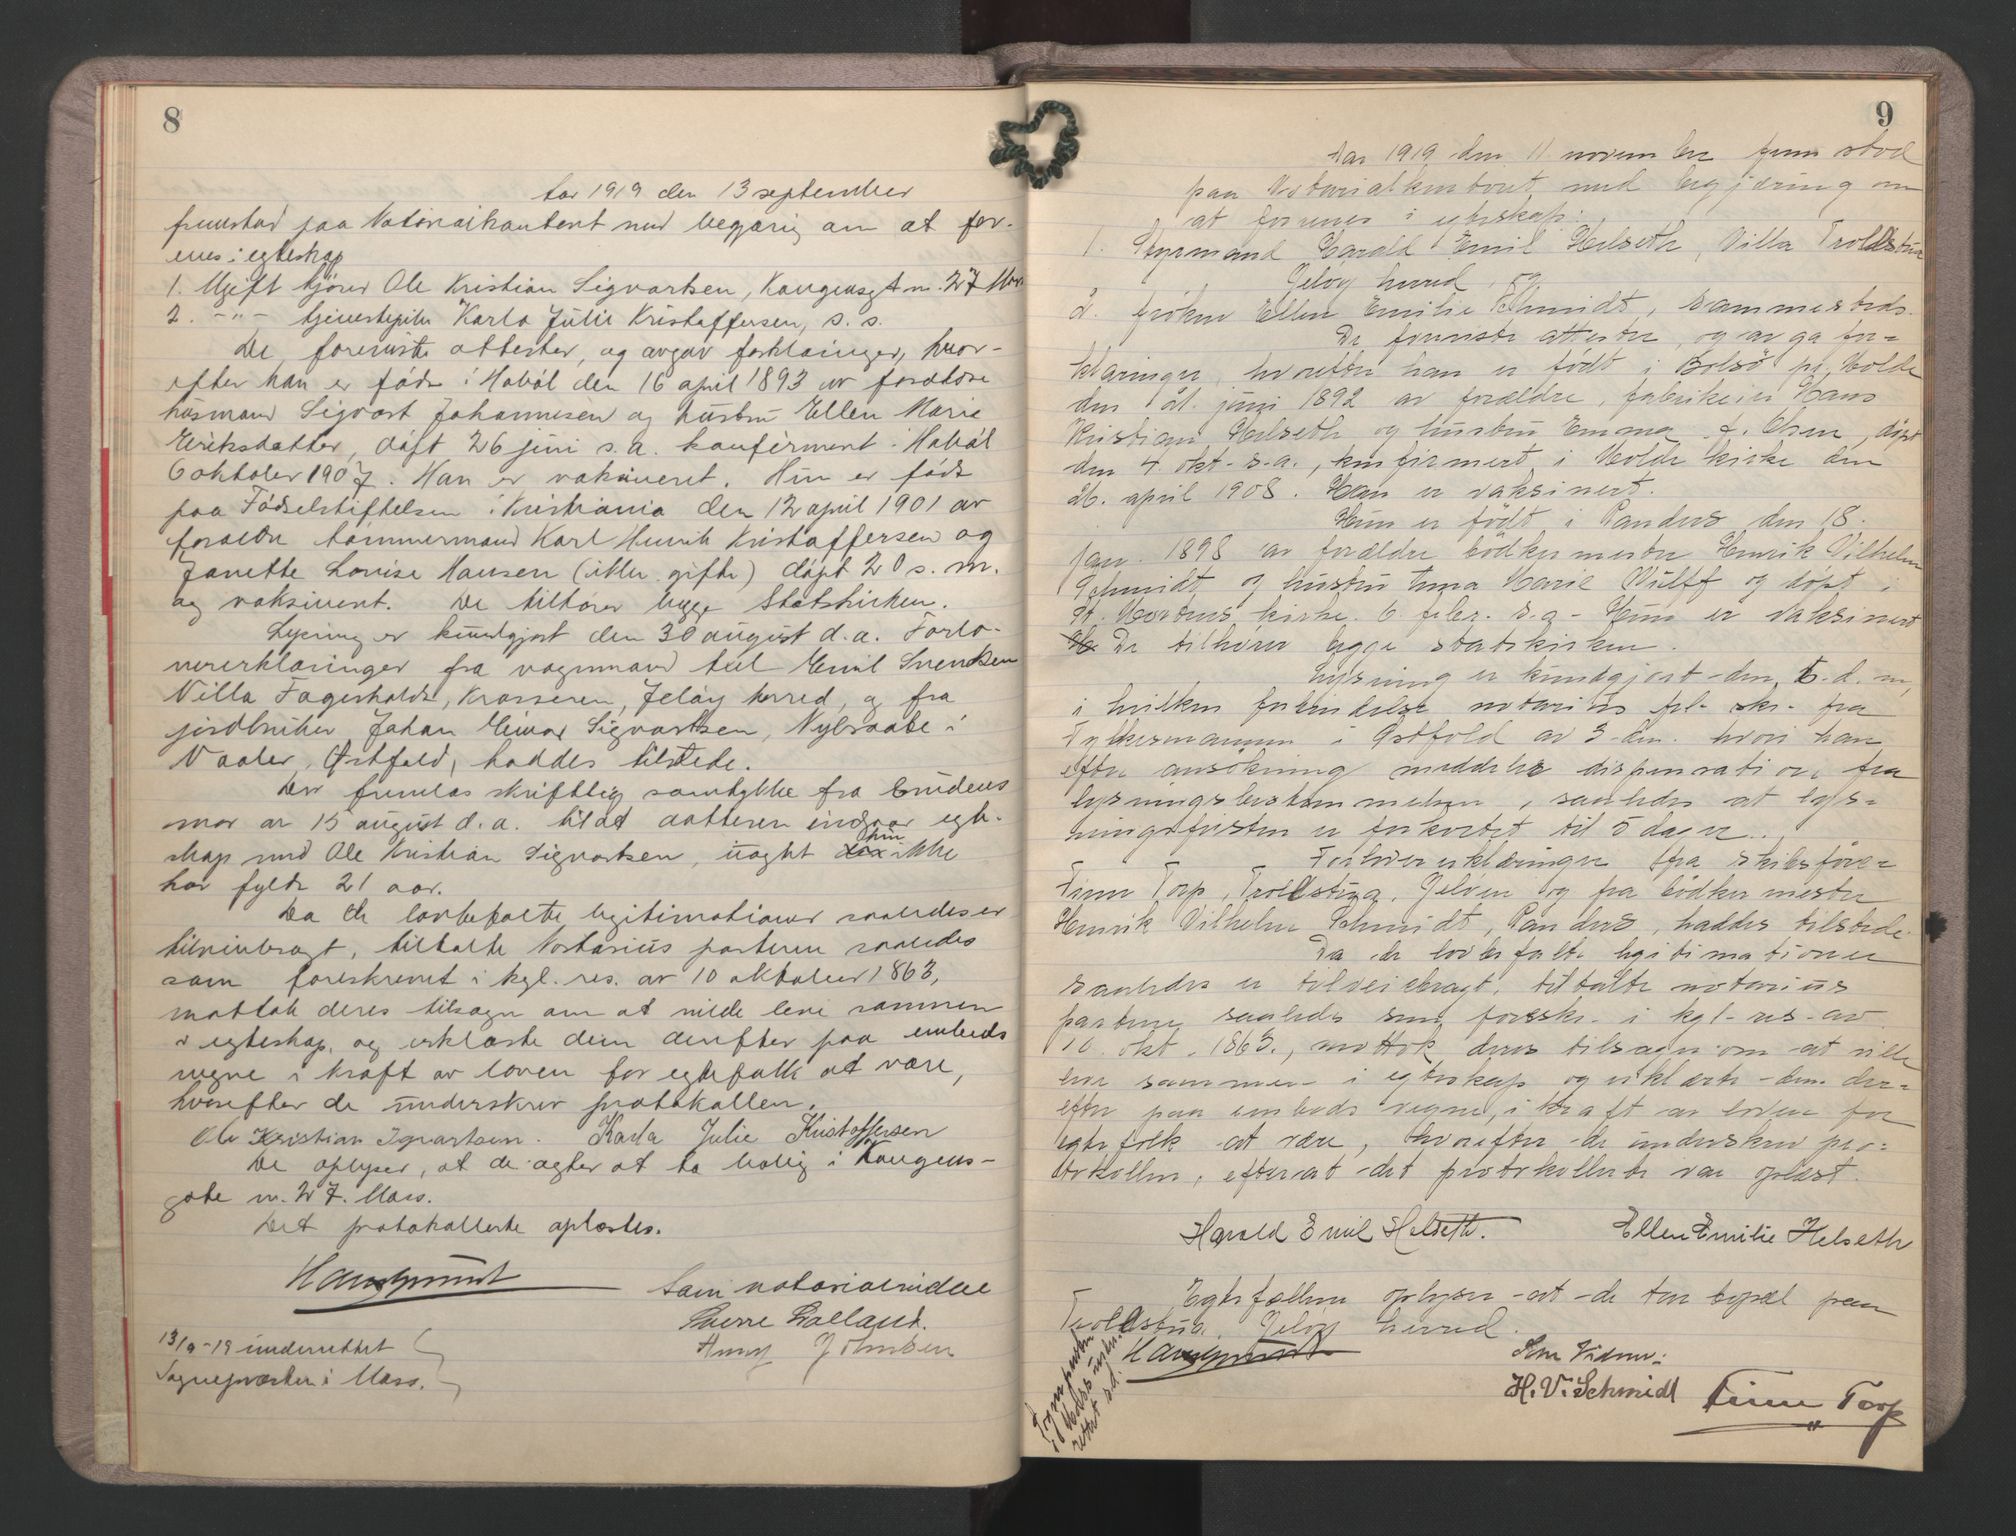 8
Aar 1919 den 13 september
fremstod paa Notarialkontoret med begjæring om at for-
enes i egteskap
1. Ugift kjører Ole Kristian Sigvartsen, Kongensgt nr. 27 Moss
2. -"- tjenestepike Karla Julie Kristoffersen, s. s.
De foreviste attester, og avgav forklaringer, hvor-
efter han er født i Hobøl den 16 april 1893 av forældre
husmand Sigvart Johannesen og hustru Ellen Marie
Eriksdatter, døpt 26 juni s. a. konfirmert i Hobøl
6 oktober 1907. Han er vaksineret. Hun er født
paa Fødselstiftelsen i Kristiania den 12 april 1901 av
forældre tømmermand Karl Henrik Kristoffersen og
Janette Lovise Hansen (ikke gifte) døpt 20 s. m.
og vaksinert. De tilhører begge Statskirken.
Lysning er kundgjort den 30 august d. a. Forlo-
vererklæringer fra vognmand Axel Emil Svendsen
Villa Fagerholdt, Krosseren, Jeløy herred, og fra
jordbruker Johan Einar Sigvartsen, Nybraate i
Vaaler, Østfold, haddes tilstede.
Der fremlas skriftlig samtykke fra brudens
mor av 15 august d. a. til at datteren indgaar egte-
skap med Ole Kristian Sigvartsen, uagtet hun ikke
har fyldt 21 aar.
Da de lovbefalte legitimationer saaledes er
tilveiebragt, tiltalte Notarius parterne saaledes
som foreskrevet i kgl. res. av 10 oktober 1863,
mottok deres tilsagn om at ville leve sammen
i egteskap, og erklærte dem derefter paa embeds
vegne i kraft av loven for egtefolk at være,
hvorefter de underskrev protokollen.
Ole Kristian Sigvartsen. Karla Julie Kristoffersen
De oplyser, at de agter at ta bolig i Kongens-
gate nr. 27. Moss.
Det protokollerte oplæstes.
Som notarialvidne
Sverre Lolland.
Anny Johnsen
13/9-19 underrettet
Sognepræsten i Moss.
9
Aar 1919 den 11 november frem stod
paa Notarialkontoret med begjæring om
at forenes i egteskap:
1. Styrmand Harald Emil Helseth, Villa Troldstua
Jeløy herred, og
2. frøken Ellen Emilie Schmidt, sammesteds.
De foreviste attester, og avga for=
klaringer, hvorefter han er født i Bolsø pr. Molde
den 21. juni 1892 av forældre, fabrikeier Hans
Kristian Helseth og hustru Emma f. Olsen, døpt
den 4. okt. s.a., konfirmert i Molde kirke den
26. april 1908. Han er vaksinert.
Hun er født i Randers den 18.
jan. 1898 av forældre bødkermester Henrik Vilhelm
Schmidt og hustru Anna Marie Wulff og døpt i
St. Mortens kirke 6. febr. s.a. - Hun er vaksinert
De tilhører begge statskirken.
Lysning er kundgjort den 5. d. m,
i hvilken forbindelse notarius frl. skr. fra
Fylkesmannen i Østfold av 3 dm. hvori han
efter ansøkning meddeler dispensation fra
lysningsbestemmelsen, saaledes at lys=
ningsfristen er forkortet til 5 dager.
Forlovererklæringer fra skibsfører
Finn Torp, Troldstua, Jeløen og fra bødkermester
Henrik Vilhelm Schmidt, Randers, haddes tilstede.
Da de lovbefalte legitimationer
saaledes er tilveiebragt, tiltalte notarius
parterne saaledes som foreskr. i kgl. res. av
10. okt. 1863., mottok deres tilsagn om at ville
leve sammen i egteskap og erklærte dem der=
efter paa embeds vegne, i kraft av loven for
egtefolk at være, hvorefter de underskrev pro=
tokollen, efterat det protokollerte var oplæst.
Harald Emil Helseth. Ellen Emilie Helseth
Egtefællene oplyser at de tar bopæl paa
Troldstua, Jeløy herred.
Som Vidner:
H. V. Schmidt Finn Torp